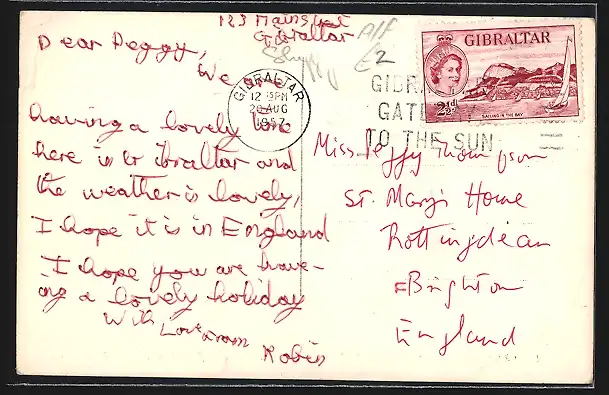 123 Main Street
Gibraltar
A/F
£2
Dear Peggy,
We are
having a lovely time
here in Gibraltar and
the weather is lovely,
I hope it is in England
I hope you are have-
ing a lovely holiday
With Love from
Robin
GIBRALTAR
12 PM
20 AUG
1957
GIBRALTAR
GATE
TO THE SUN
GIBRALTAR
2½d
SAILING IN THE BAY
Miss Peggy Thompson
St. Mary's Home
Rottingdean
Brighton
England